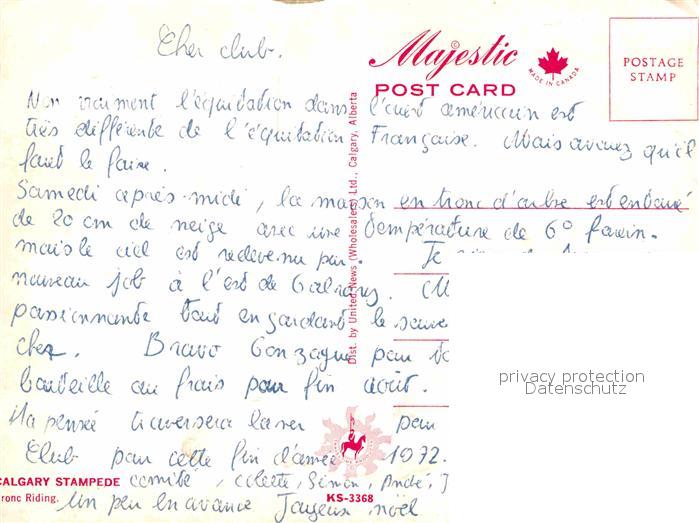 Cher club.
Majestic
MADE IN CANADA
POST CARD
POSTAGE
STAMP
Non vraiment l'équitation dans l'ouest américain est
très différente de l'équitation Française. Mais avouez qu'il
faut le faire.
Samedi après-midi, la maison en tronc d'arbre est entouré
de 20 cm de neige avec une température de 6° faren.
mais le ciel est redevenu pur. Je
nouveau job à l'est de Calgary.
passionnante tout en gardant le
chez. Bravo Gonzague pour
bouteille au frais pour fin août.
Ma pensée traversera la mer pour
Club pour cette fin d'année 1972.
comité, Colette, Simon, André,
Un peu en avance Joyeux noël
Dist. by United News (Wholesalers) Ltd., Calgary, Alberta
privacy protection
Datenschutz
CALGARY STAMPEDE
ronc Riding.
KS-3368